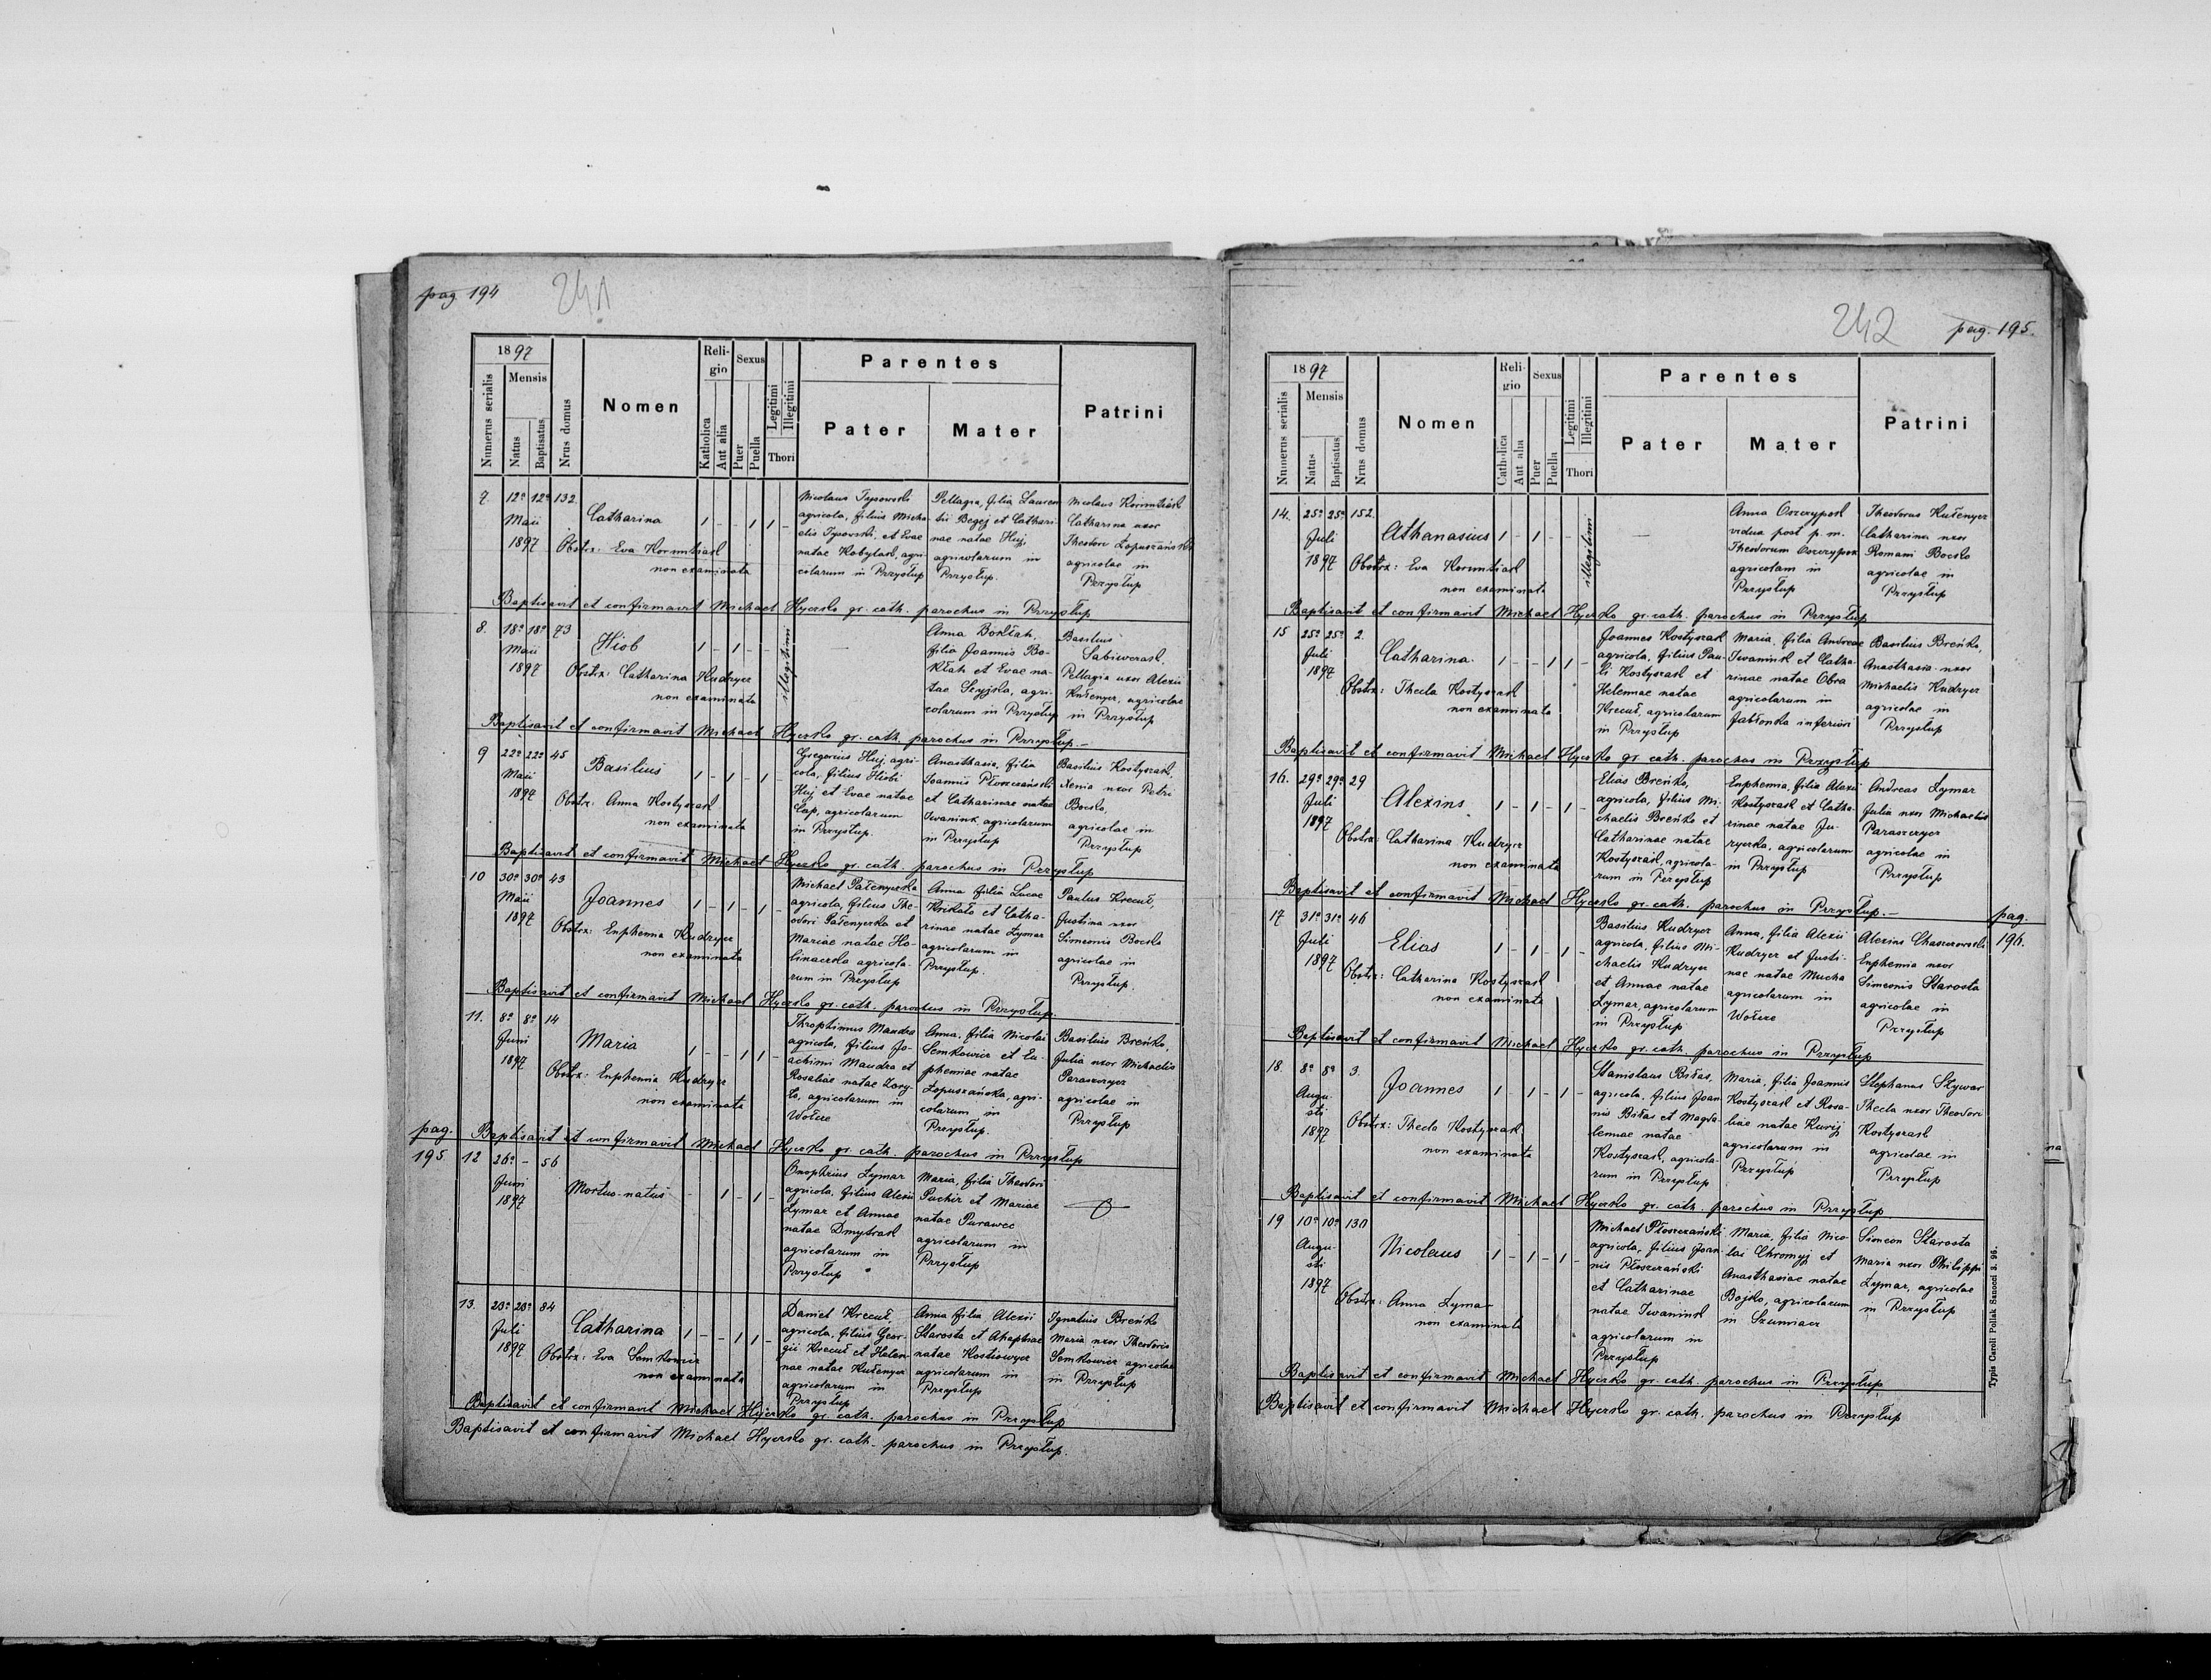 pag 194
241
1897
Numerus serialis
Mensis
Natus
Baptisatus
Nrus domus
Nomen
Religio
Katholica
Aut alia
Sexus
Puer
Puella
Legitimi
Illegitimi
Thori
Parentes
Pater
Mater
Patrini
7. 12a 12a 132
Maii
1897
Catharina
1 - - 1 1 -
Obstrx: Eva
non examinata
Nicolaus Tysowski
agricola, filius Micha-
elis Tysowski et Evae
natae Kobylak, agri-
colarum in Przysłup
Pellagia, filia Lauren
tii Begej et Cathari-
nae natae Huj,
agricolarum in
Przysłup.
Nicolaus
Catharina uxor
Theodori Łopuszański
agricolae in
Przysłup
Baptisavit et confirmavit Michael Hycsko gr. cath. parochus in Przysłup
8. 18a 18a 73
Maii
1897
Hiob
1 - 1 - -
illegitimi
Obstrx: Catharina Kudryer
non examinata
Anna Boktah,
filia Joannis Bo-
ktah et Evae na-
tae, agri-
colarum in Przysłup
Basilius
Pellagia uxor Alexii
Kuřenyer, agricolae
in Przysłup
Baptisavit et confirmavit Michael Hycsko gr. cath. parochus in Przysłup.-
9 22a 22a 45
Maii
1897
Basilius
1 - 1 - 1 -
Obstrx: Anna Kostyszak
non examinata
Gregorius Huj, agri-
cola, filius Hiobi
Huj et Evae natae
Cap, agricolarum
in Przysłup.
Anasthasia, filia
Joannis Płoszczański
et Catharinae natae
Iwanink agricolarum
in Przysłup
Basilius Kostyszak,
Xenia uxor Petri
Bocsko,
agricolae in
Przysłup
Baptisavit et confirmavit Michael Hycsko gr. cath. parochus in Przysłup
10 30a 30a 43
Maii
1897
Joannes
1 - 1 - 1 -
Obstrx: Euphemia Kudryer
non examinata
Michael
agricola, filius The-
odori et
Mariae natae Ho-
agricola-
rum in Przysłup
Anna filia Lucae
et Catha-
rinae natae Łymar
agricolarum in
Przysłup.
Paulus Krecuł,
Justina uxor
Simeonis Bocsko
agricolae in
Przysłup.
Baptisavit et confirmavit Michael Hycsko gr. cath. parochus in Przysłup.
11. 8a 8a 14
Juni
1897
Maria
1 - - 1 1 -
Obstrx: Euphemia Kudryer
non examinata
Throphimus Mandza
agricola, filius Jo-
achimi Mandza et
Rosaliae natae
agricolarum in
Wołcze
Anna, filia Nicolai
Semkowicz et Eu-
phemiae natae
Łopuszańska, agri-
colarum in
Przysłup.
Basilius Breńko,
Julia uxor Michaelis
Paraszczyer
agricolae in
Przysłup
Baptisavit et confirmavit Michael Hycsko gr. cath. parochus in Przysłup
pag.
195
12 26a - 56
Juni
1897
Mortuo-natus
- 1 - 1 -
Onophrius Łymar
agricola, filius Alexii
Łymar et Annae
natae Dmytrak
agricolarum in
Przysłup
Maria, filia Theodori
Puchir et Mariae
natae Purawec
agricolarum in
Przysłup
13. 23a 23a 84
Juli
1897
Catharina
1 - - 1 1 -
Obstrx: Eva Semkowicz
non examinata
Daniel Krecuł,
agricola, filius Geor-
gii Krecuł et Helen-
nae natae Kuřenyer
agricolarum in
Przysłup
Anna filia Alexii
Starosta et Ahaphiae
natae Kostiowyer
agricolarum in
Przysłup
Ignatius Breńko
Maria uxor Theodoris
Semkowicz agricolae
in Przysłup
Baptisavit et confirmavit Michael Hycsko gr. cath. parochus in Przysłup
Baptisavit et confirmavit Michael Hycsko gr. cath. parochus in Przysłup.
242
pag. 195.
1897
Numerus serialis
Mensis
Natus
Baptisatus
Nrus domus
Nomen
Religio
Catholica
Aut alia
Sexus
Puer
Puella
Legitimi
Illegitimi
Thori
Parentes
Pater
Mater
Patrini
14. 25a 25a 152.
Juli
1897
Athanasius
1 - 1 - -
illegitimi
Obstrx: Eva
non examinata
Anna Oszczypok
vidua post p. m.
Theodorum Oszczypok
agricolam in
Przysłup
Theodorus Kuřenyer
Catharina uxor
Romani Bocsko
agricolae in
Przysłup
Baptisavit et confirmavit Michael Hycsko gr. cath. parochus in Przysłup
15 25a 25a 2.
Juli
1897
Catharina
1 - - 1 1 -
Obstrx: Thecla Kostyszak
non examinata
Joannes Kostyszak
agricola, filius Pau-
li Kostyszak et
Helennae natae
Krecuł, agricolarum
in Przysłup
Maria, filia Andreae
Iwanink et Catha-
rinae natae Obra
agricolarum in
Jabłonka inferiori
Basilius Breńko,
Anasthasia uxor
Michaelis Kudryer
agricolae in
Przysłup
Baptisavit et confirmavit Michael Hycsko gr. cath. parochus in Przysłup
16. 29a 29a 29
Juli
1897
Alexius
1 - 1 - 1 -
Obstrx: Catharina Kudryer
non examinata
Elias Breńko,
agricola, filius Mi-
chaelis Breńko et
Catharinae natae
Kostyszak, agricola-
rum in Przysłup
Euphemia, filia Alexii
Kostyszak et Catha-
rinae natae Ju-
ryczko, agricolarum
in Przysłup
Andreas Łymar
Julia uxor Michaelis
Paraszczyer
agricolae in
Przysłup
Baptisavit et confirmavit Michael Hycsko gr. cath. parochus in Przysłup.-
pag.
196.
17 31a 31a 46
Juli
1897
Elias
1 - 1 - 1 -
Obstrx: Catharina Kostyszak
non examinata
Basilius Kudryer
agricola, filius Mi-
chaelis Kudryer
et Annae natae
Łymar, agricolarum
in Przysłup
Anna, filia Alexii
Kudryer et Justi-
nae natae Mucha
agricolarum in
Wołcze
Alexius Chaszczowski
Euphemia uxor
Simeonis Starosta
agricolae in
Przysłup
Baptisavit et confirmavit Michael Hycsko gr. cath. parochus in Przysłup
18. 8a 8a 3.
Augu-
sti
1897
Joannes
1 - 1 - 1 -
Obstrx: Thecla Kostyszak
non examinata
Stanislaus Biłas,
agricola, filius Joan
nis Biłas et Magda-
lennae natae
Kostyszak, agricola-
rum in Przysłup
Maria, filia Joannis
Kostyszak et Rosa-
liae natae Kurij
agricolarum in
Przysłup
Stephanus Szywar
Thecla uxor Theodori
Kostyszak
agricolae in
Przysłup
Baptisavit et confirmavit Michael Hycsko gr. cath. parochus in Przysłup
19 10a 10a 130
Augu-
sti
1897
Nicolaus
1 - 1 - 1 -
Obstrx: Anna Łymar
non examinata
Michael Płoszczański
agricola, filius Joan-
nis Płoszczański
et Catharinae
natae Iwanink
agricolarum in
Przysłup
Maria, filia Nico-
lai Chromyj et
Anasthasiae natae
Bojko, agricolarum
in Szumiacz
Simeon Starosta
Maria uxor Philippi
Łymar, agricolae
in Przysłup
Baptisavit et confirmavit Michael Hycsko gr. cath. parochus in Przysłup
Baptisavit et confirmavit Michael Hycsko gr. cath. parochus in Przysłup
Typis Caroli Pollak Sanoci 3. 96.
na